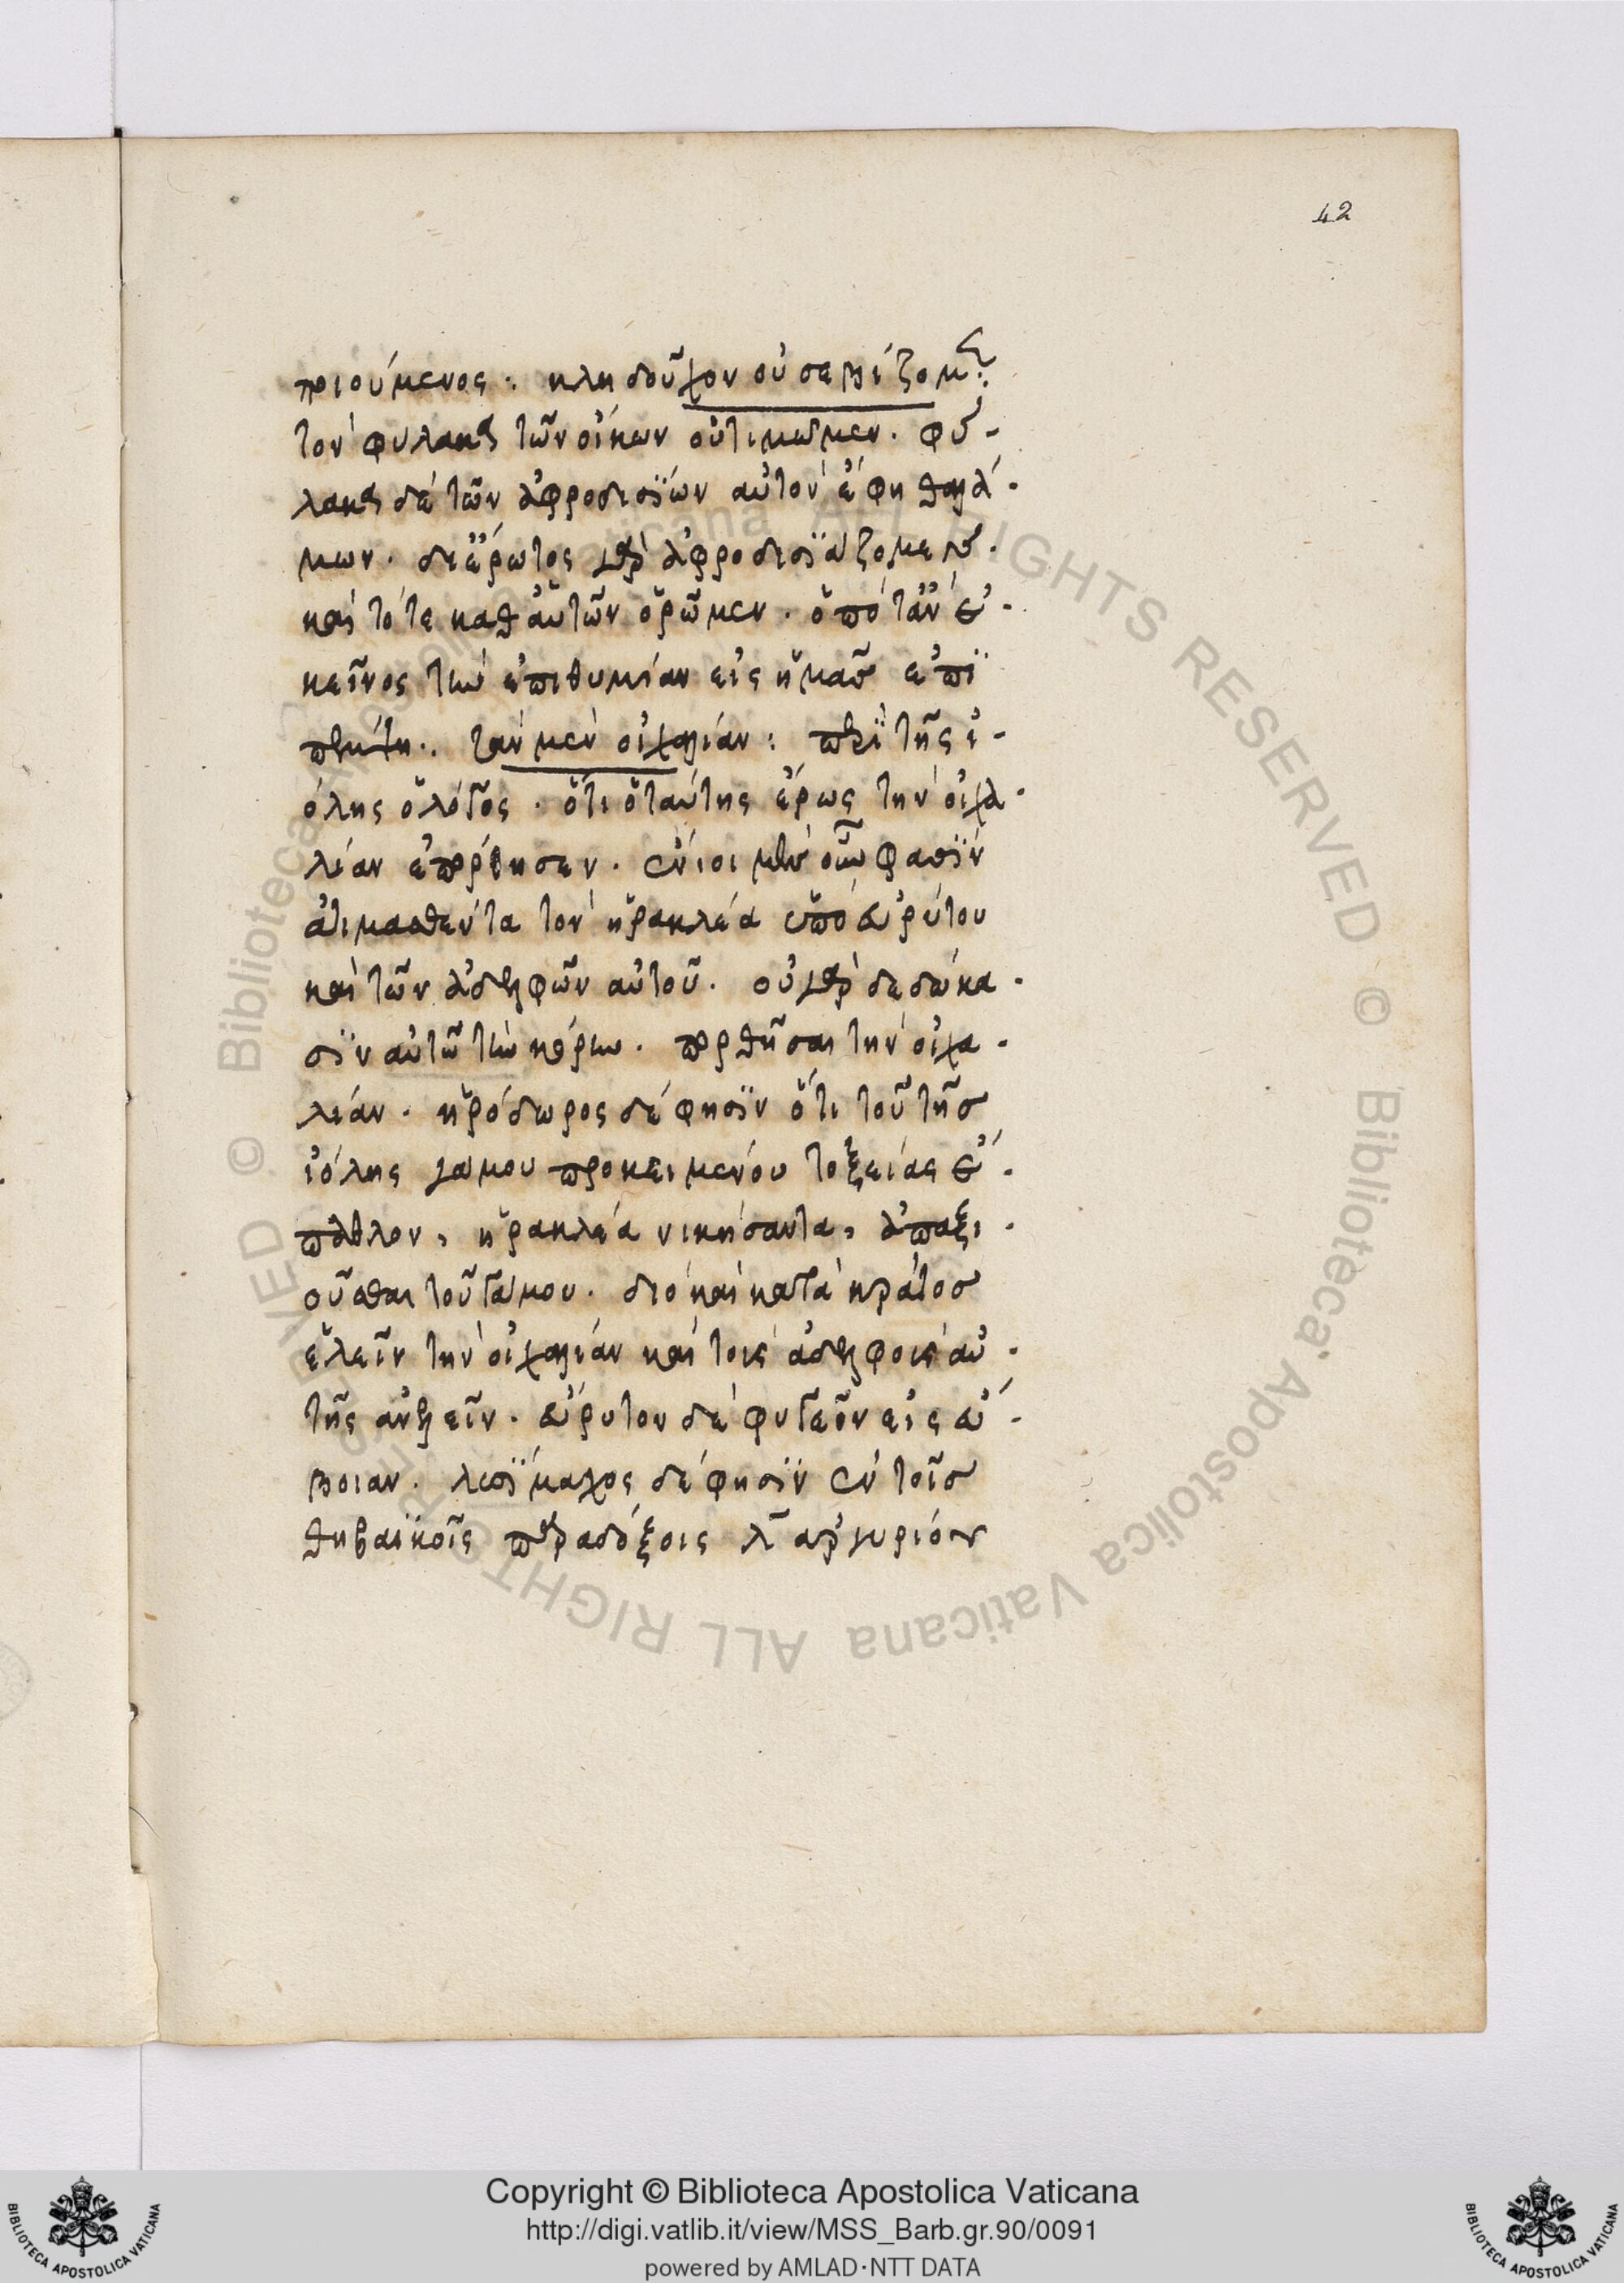 42
ποιούμενος: κληδοῦχον οὐ σεβίζομ:
τὸν φύλακα τῶν οἴκων οὐ τιμῶμεν. φύ-
λακα δὲ τῶν ἀφροδισΐων αὐτὸν ἔφη θαλά-
μων. δι' ἔρωτος γὰρ ἀφροδισϊάζομεν.
καὶ τότε καθ' αὑτῶν ὁρῶμεν. ὁπόταν ἐ-
κεῖνος τὴν ἐπιθυμίαν εἰς ἡμᾶσ ἐπϊ
πέμπη.. τὰν μὲν οἰχαλίαν: περϊ τῆς ἰ-
όλης ὁ λόγος. ὅτι ὁ ταύτης ἔρως τὴν οἰχα-
λίαν ἐπόρθησεν. ἔνιοι μὲν οὖν φασϊν
ἀτιμασθέντα τὸν ἡρακλέα ὑπὸ εὐρύτου
καὶ τῶν ἀδελφῶν αὐτοῦ. οὐ γὰρ δεδώκα-
σϊν αὐτῶ τὴν κόρην. πορθῆσαι τὴν οἰχα-
λίαν. ἡρόδωρος δέ φησϊν ὅτι τοῦ τῆσ
ἰόλης γάμου προκειμένου τοξείας ἔ-
παθλον, ἡρακλέα νικήσαντα, ἀπαξι-
οῦσθαι τοῦ γάμου. διὸ καὶ κατὰ κράτοσ
ἑλεῖν τὴν οἰχαλίαν καὶ τοὺς ἀδελφοὺς αὐ-
τῆς ἀνελεῖν. εὔρυτον δὲ φυγεῖν εἰς εὔ-
βοιαν. λυσϊμαχος δέ φησϊν ἐν τοῖσ
θηβαϊκοῖς παραδόξοις λ̄ ἀργυρίου
Copyright © Biblioteca Apostolica Vaticana
http://digi.vatlib.it/view/MSS_Barb.gr.90/0091
powered by AMLAD·NTT DATA